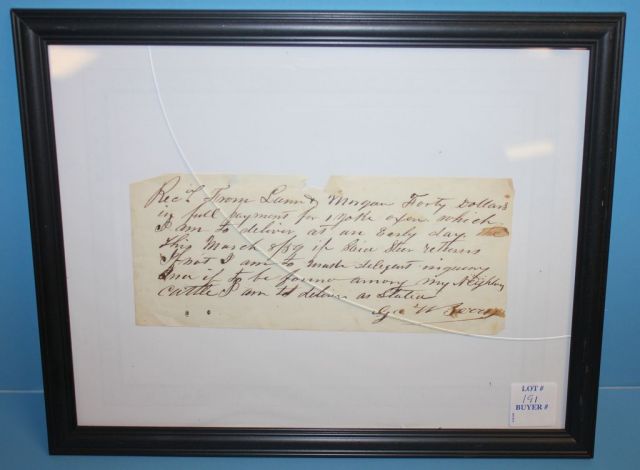 Rec'd From Lunn & Morgan Forty Dollars
in full payment for 1 yoke oxen which
I am to deliver at an Early day
this March 8/59 if Steer returns
If not I am to make diligent inquiry
and if to be found among my Neighbors
cattle I am to deliver as Stated
Geo W
LOT #
191
BUYER #